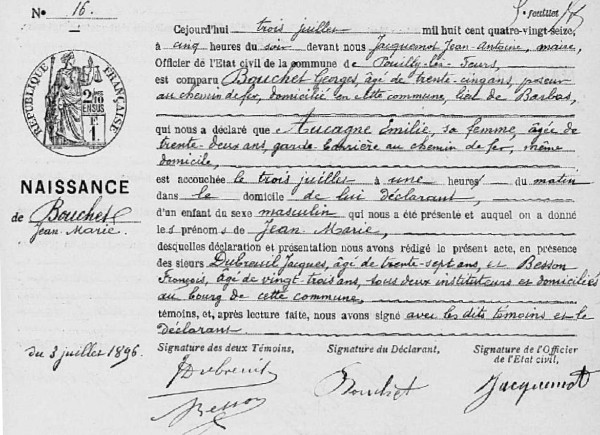 N° 16.
5e feuillet
Cejourd'hui trois juillet mil huit cent quatre-vingt-seize,
à cinq heures du soir devant nous Jacquemot Jean-Antoine, maire,
Officier de l'Etat civil de la commune de Pouilly-les-Feurs
est comparu Bouchet Georges, âgé de trente-cinq ans, poseur
au chemin de fer, domicilié en cette commune, lieu de Barbas,
qui nous a déclaré que Aucagne Emilie, sa femme, âgée de
trente-deux ans, garde-barrière au chemin de fer, même
domicile,
est accouchée le trois juillet à une heure du matin
dans le domicile de lui déclarant,
d'un enfant du sexe masculin qui nous a été présenté et auquel on a donné
les prénoms de Jean Marie,
desquelles déclaration et présentation nous avons rédigé le présent acte, en présence
des sieurs Dubreuil Jacques, âgé de trente-sept ans et Besson
François, âgé de vingt-trois ans, tous deux instituteurs et domiciliés
au bourg de cette commune,
témoins, et, après lecture faite, nous avons signé avec les dits témoins et le
Déclarant
RÉPUBLIQUE FRANÇAISE
2/10
EN SUS
1F
NAISSANCE
de Bouchet
Jean-Marie.
du 3 juillet 1896.
Signature des deux Témoins,
Signature du Déclarant,
Signature de l'Officier
de l'Etat civil,
J Dubreuil
Besson
Bouchet
Jacquemot